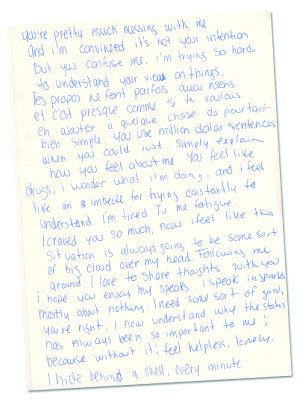 you're pretty much messing with me
and i'm convinced it's not your intention
But you confuse me. i'm trying so hard
to understand your views on things.
Tes propos ne font parfois aucun sens
et c'est presque comme si tu voulais
en ajouter a quelque chose de pourtant
bien simple. You use million dollar sentences
when you could just simply explain
how you feel about me. You feel like
drugs. i wonder what i'm doing. and i feel
like an imbecile for trying constantly to
understand. I'm tired. Tu me fatigue
I craved you so much, now i feel like this
situation is always going to be some sort
of big cloud over my head. Following me
around. I love to share thoughts with you
i hope you enjoy my speaks. I speak in
mostly about nothing. I need some sort of goal,
you're right. I now understand why the status
has always been so important to me ;
because without it i feel helpless, lonely.
I hide behind a shell, every minute